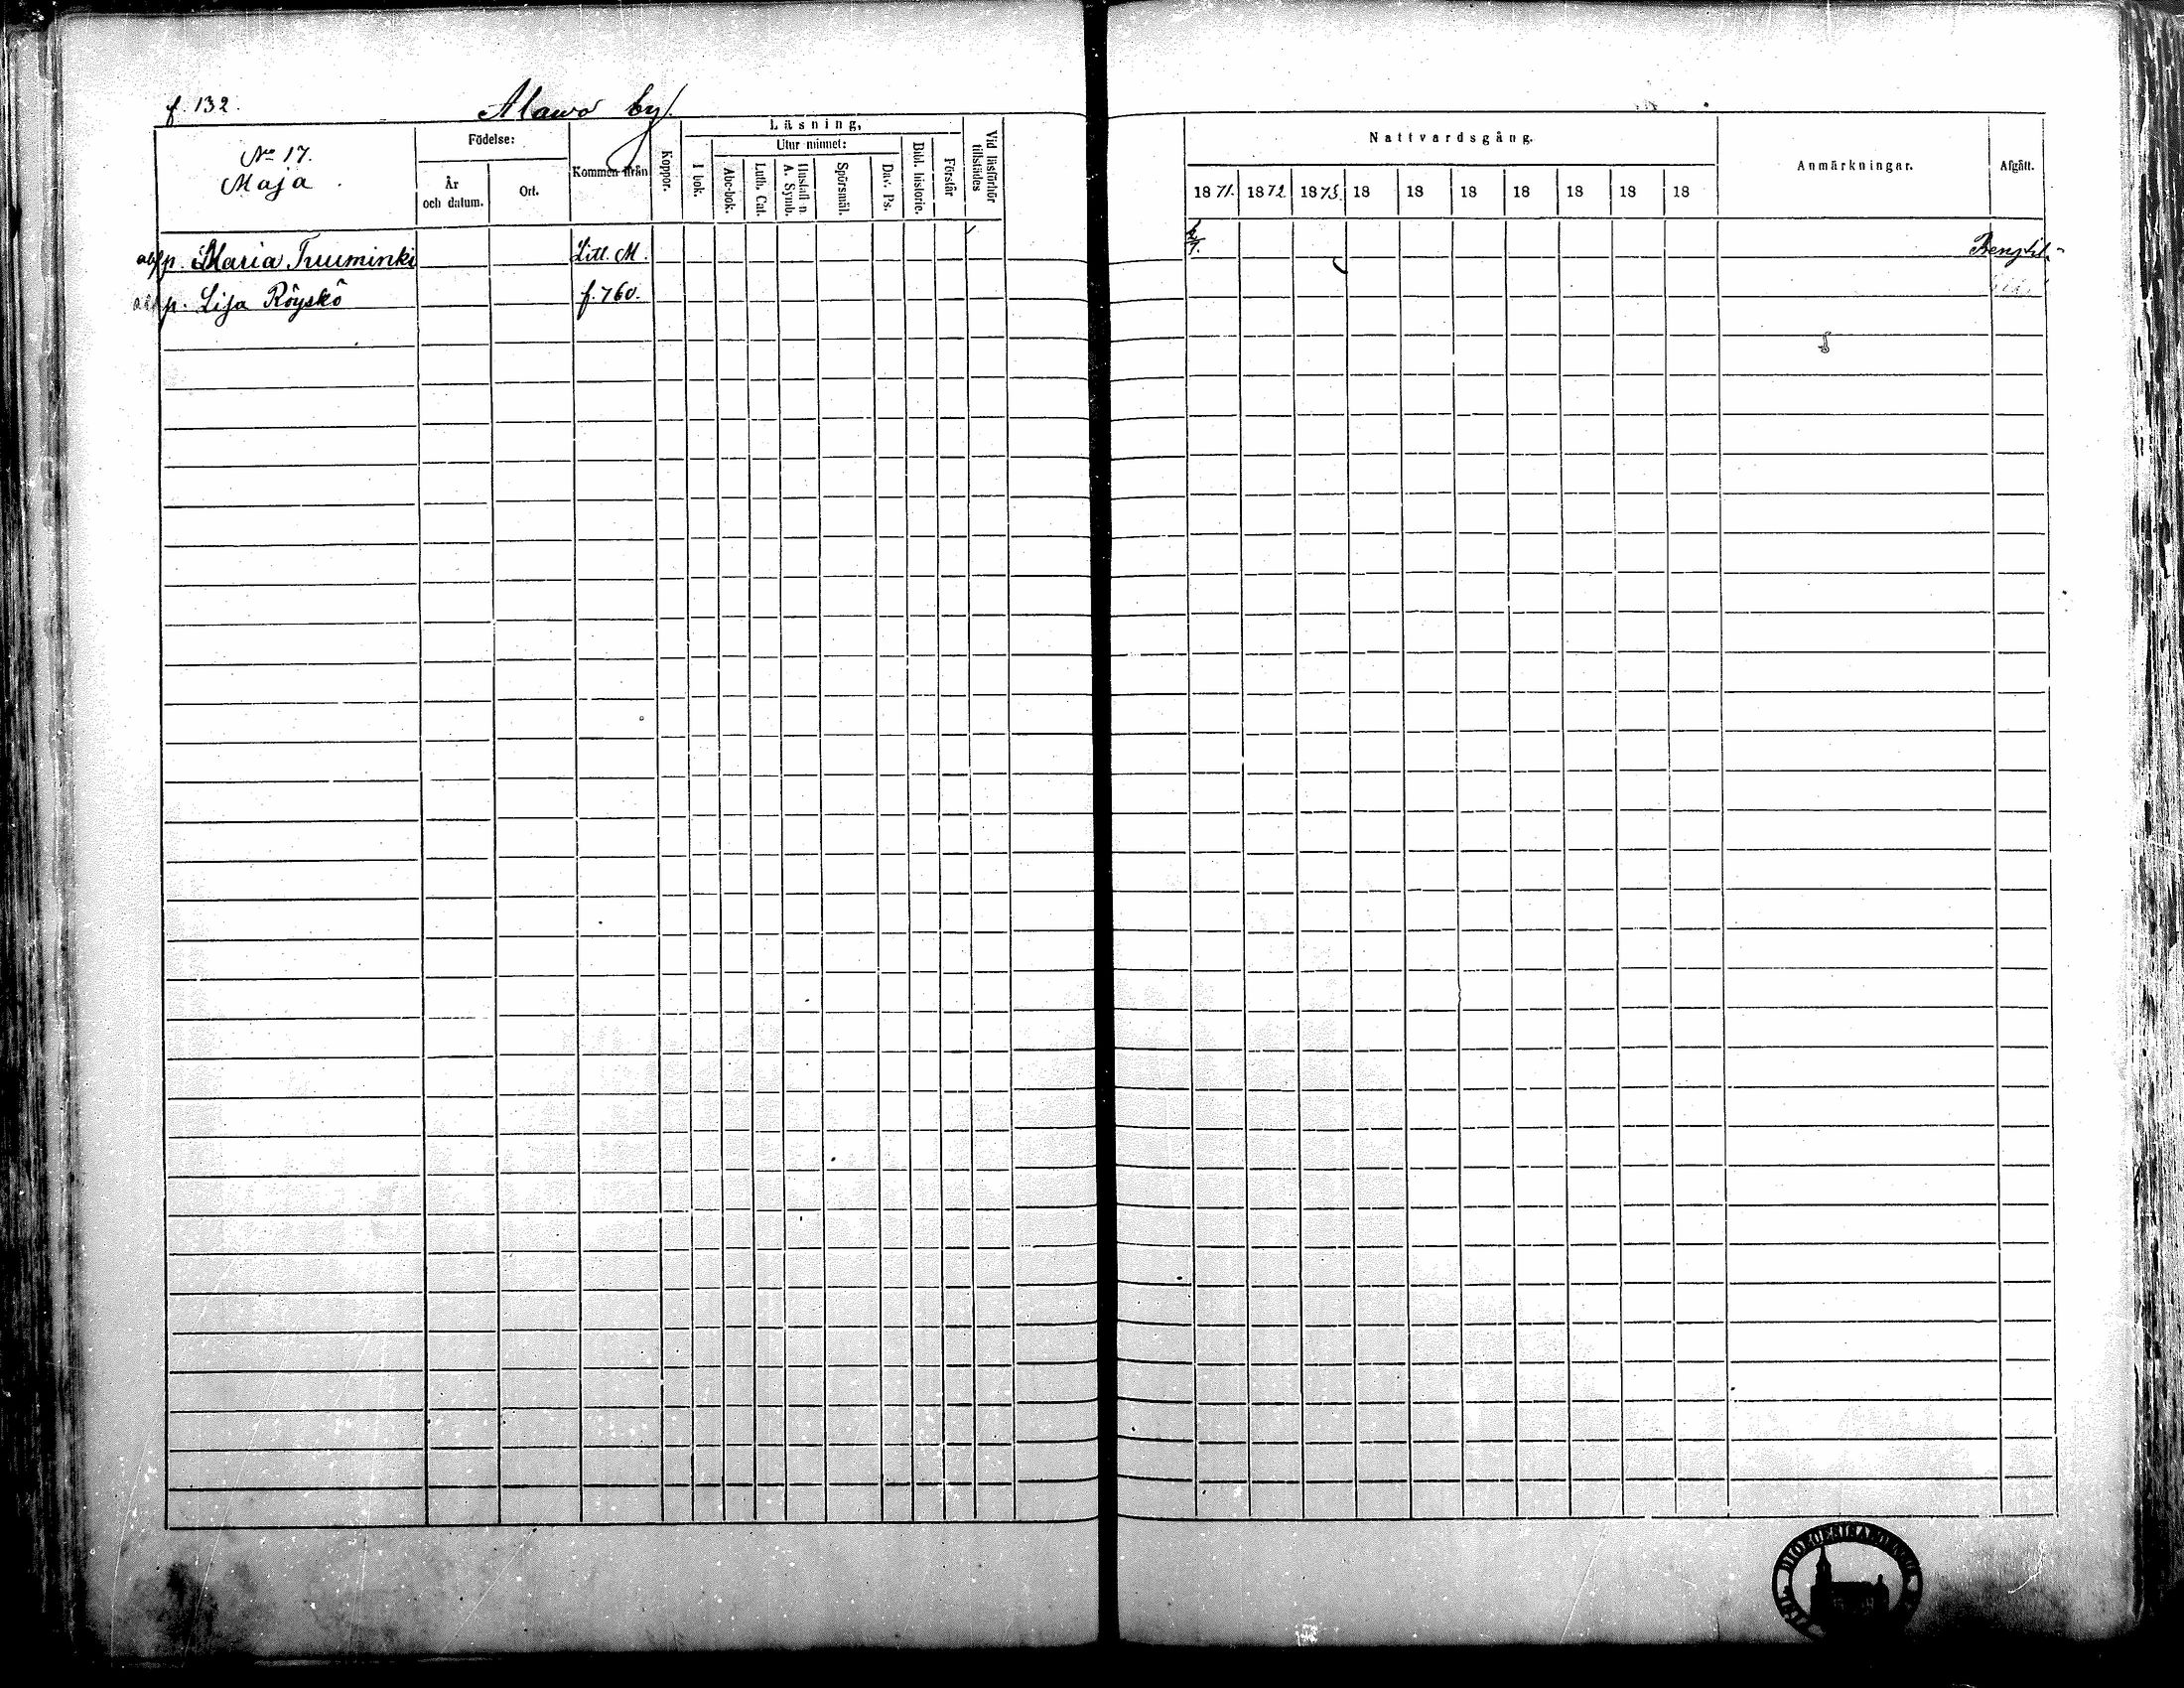 f. 132.
Alavo by.
No 17.
Maja
Födelse:
År
och datum.
Ort.
Kommen ifrån
Koppor.
Läsning,
I bok.
Utur minnet:
Abc-bok.
Luth. Cat.
Hustafl. n.
A. Symb.
Spörsmål.
Dav. Ps.
Bibl. historie.
Förstår
Vid läsförhör
tillstädes
Nattvardsgång.
1871. 1872 1873. 18 18 18 18 18 18 18
Anmärkningar.
Afgått.
p. Maria Truuminki Litt. M.
p. Lisa Röyskö f. 760.